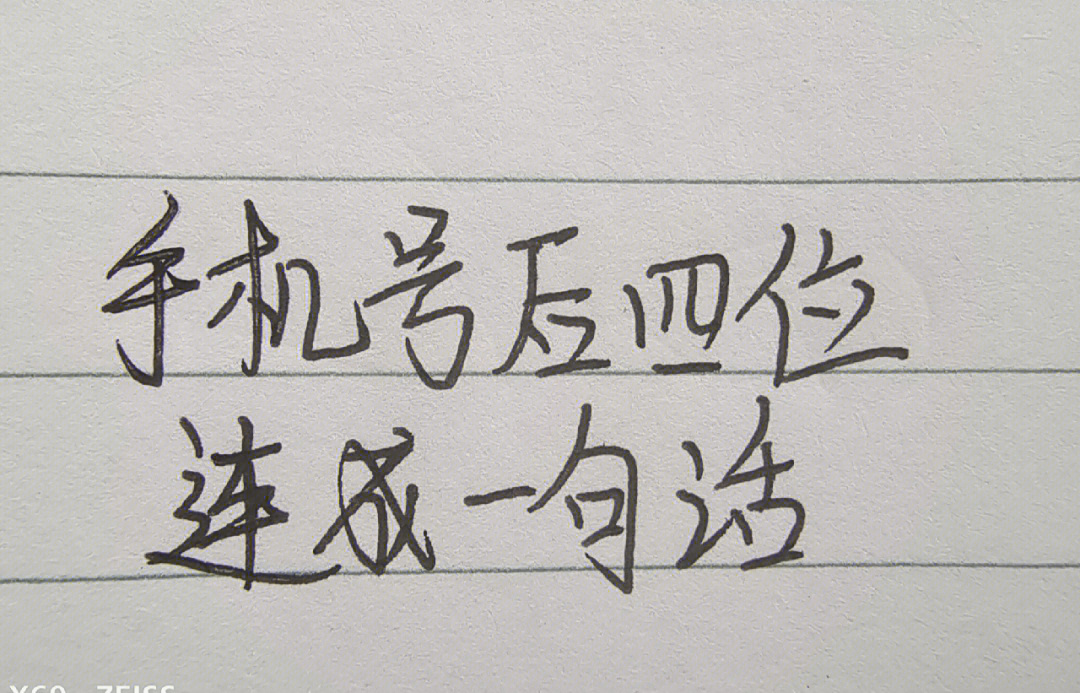 手机号后四位
连成一句话